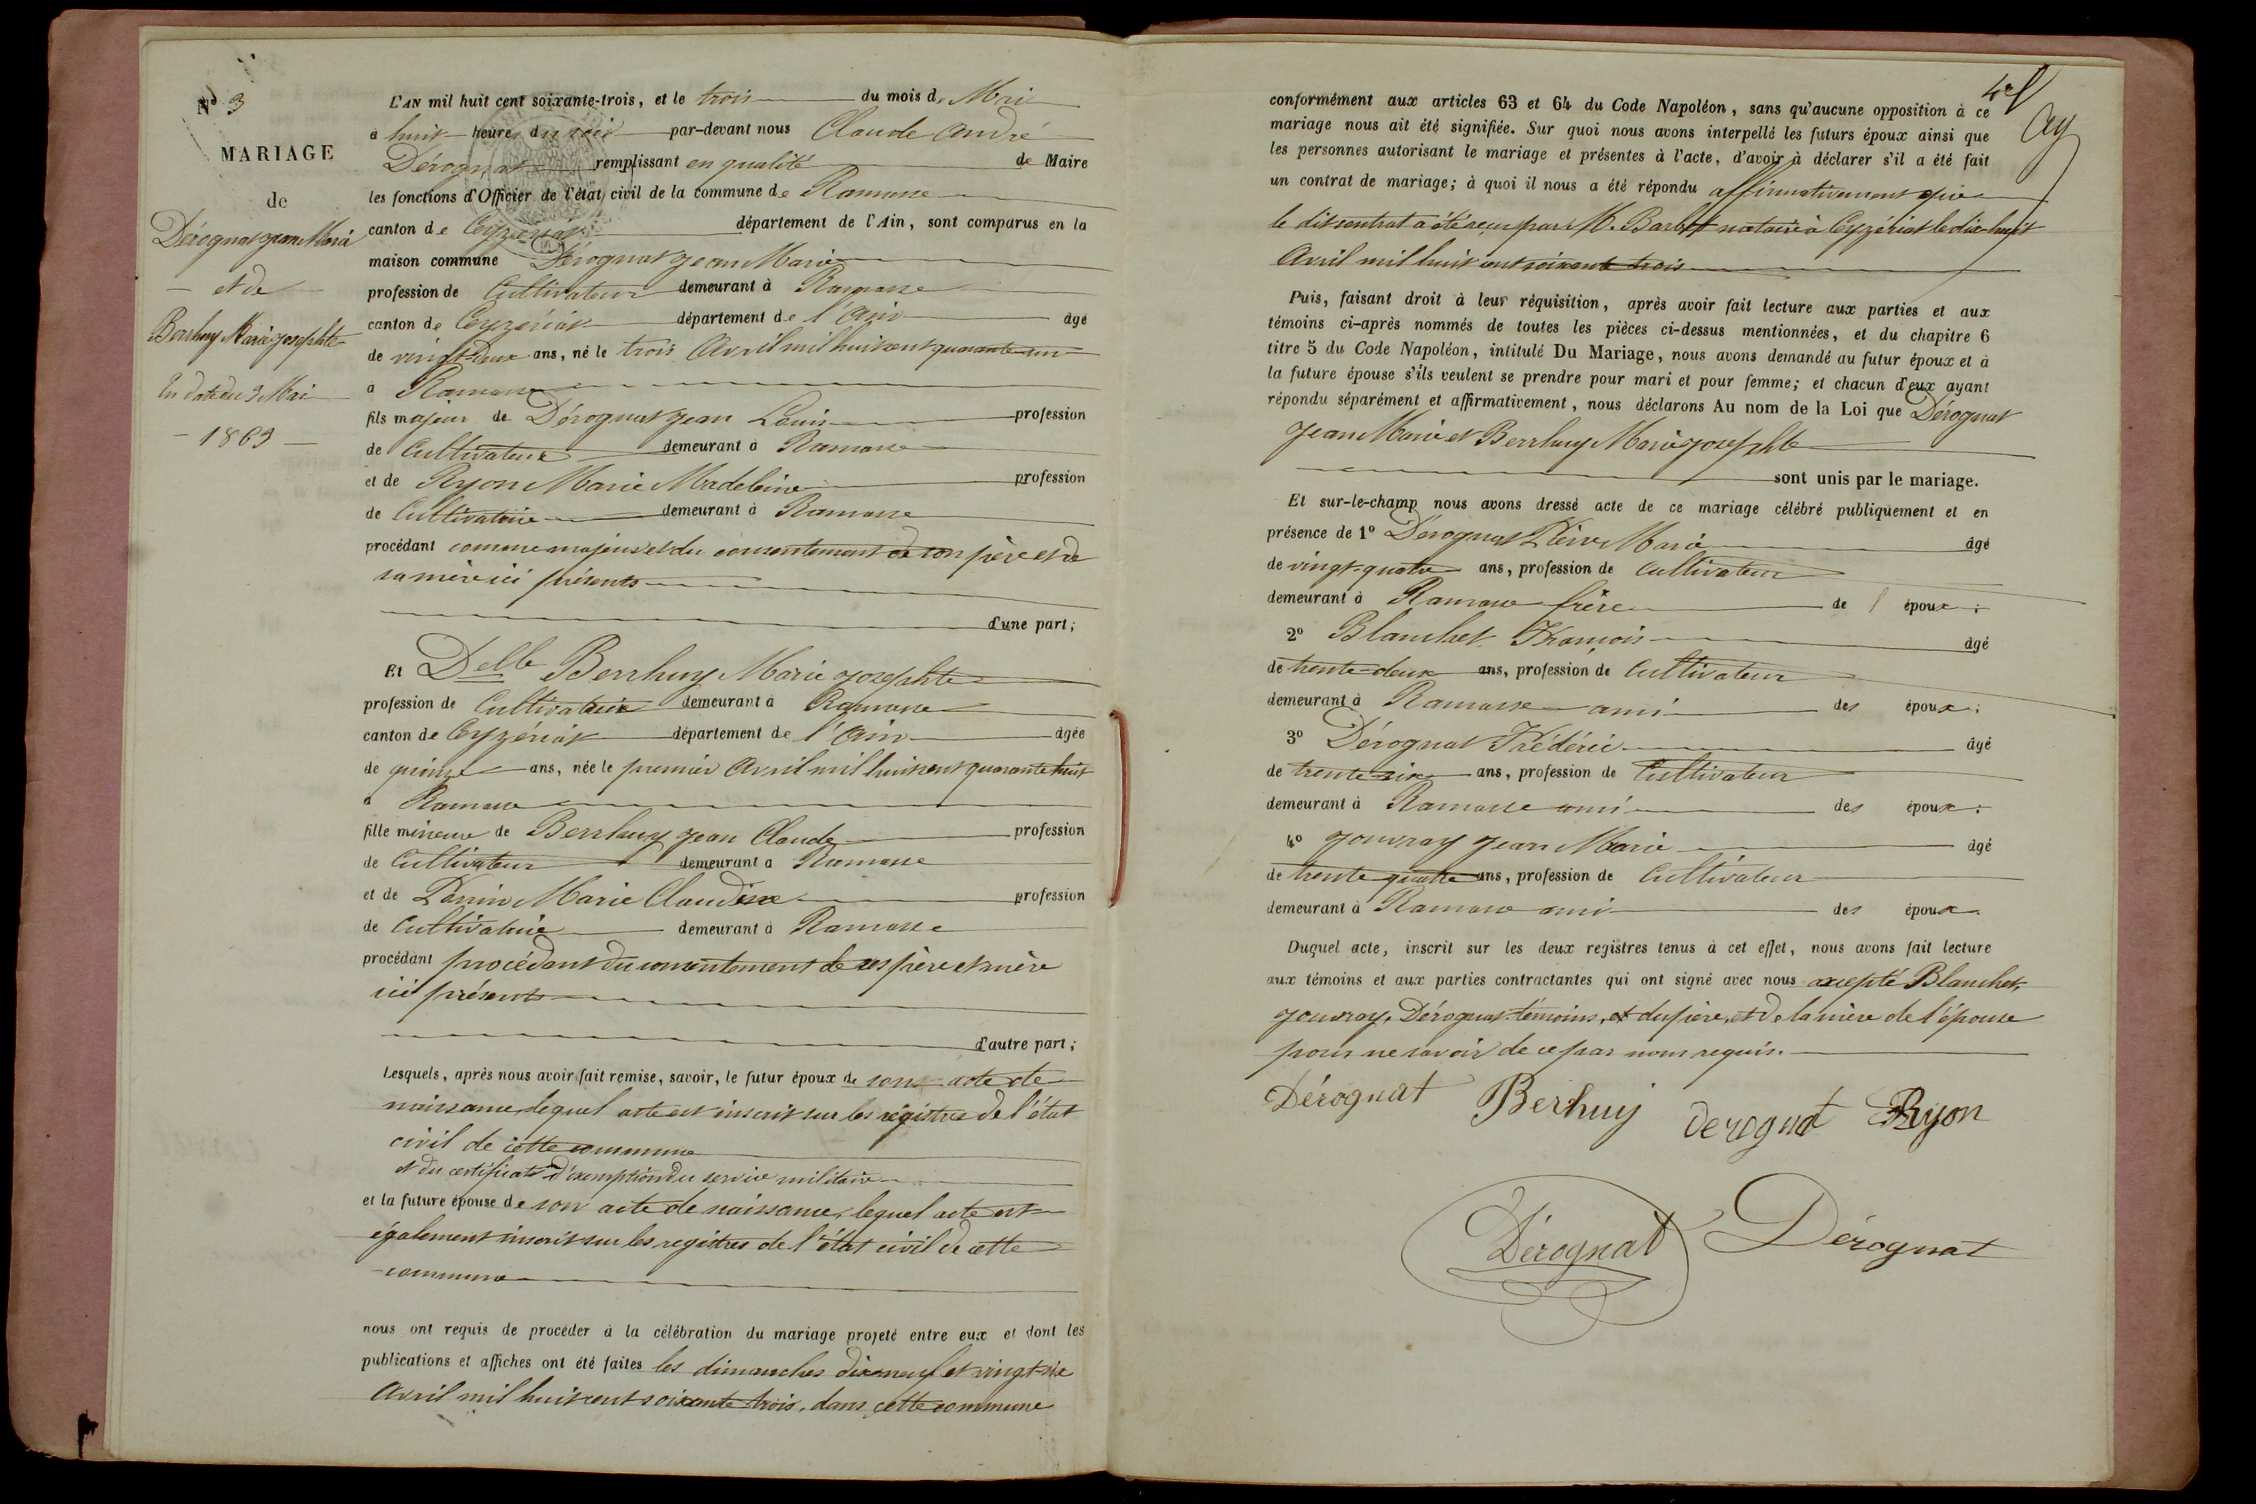 N° 3
MARIAGE
de
Dérognat Jean Marie
et de
Berrhuy Marie Josephte
En date du 3 Mai
1863
L'AN mil huit cent soixante-trois, et le trois du mois de Mai
à huit heures du soir par-devant nous Claude André
Dérognat remplissant en qualité de Maire
les fonctions d'Officier de l'état civil de la commune de Ramasse
canton de Ceyzériat département de l'Ain, sont comparus en la
maison commune Dérognat Jean Marie
profession de Cultivateur demeurant à Ramasse
canton de Ceyzériat département de l'Ain âgé
de vingt-deux ans, né le trois Avril mil huit cent quarante-un
à Ramasse
fils majeur de Dérognat Jean Louis profession
de Cultivateur demeurant à Ramasse
et de Ryon Marie Madeleine profession
de Cultivatrice demeurant à Ramasse
procédant comme majeur et du consentement de son père et de
sa mère ici présents
d'une part;
Et Delle Berrhuy Marie Josephte
profession de Cultivatrice demeurant à Ramasse
canton de Ceyzériat département de l'Ain âgée
de quinze ans, née le premier Avril mil huit cent quarante huit
à Ramasse
fille mineure de Berrhuy Jean Claude profession
de Cultivateur demeurant à Ramasse
et de Perrin Marie Claudine profession
de Cultivatrice demeurant à Ramasse
procédant procédant du consentement de ses père et mère
ici présents
d'autre part;
Lesquels, après nous avoir fait remise, savoir, le futur époux de son acte de
naissance, lequel acte est inscrit sur les régistres de l'état
civil de cette commune
et du certificat d'exemption du service militaire
et la future épouse de son acte de naissance, lequel acte est
également inscrit sur les registres de l'état civil de cette
commune
nous ont requis de procéder à la célébration du mariage projeté entre eux et dont les
publications et affiches ont été faites les dimanches dix-neuf et vingt-six
Avril mil huit cent soixante trois, dans cette commune
conformément aux articles 63 et 64 du Code Napoléon, sans qu'aucune opposition à ce
mariage nous ait été signifiée. Sur quoi nous avons interpellé les futurs époux ainsi que
les personnes autorisant le mariage et présentes à l'acte, d'avoir à déclarer s'il a été fait
un contrat de mariage; à quoi il nous a été répondu affirmativement que
le dit contrat a été reçu par M. Barbet notaire à Ceyzériat le dix-huit
Avril mil huit cent soixante trois
Puis, faisant droit à leur réquisition, après avoir fait lecture aux parties et aux
témoins ci-après nommés de toutes les pièces ci-dessus mentionnées, et du chapitre 6
titre 5 du Code Napoléon, intitulé Du Mariage, nous avons demandé au futur époux et à
la future épouse s'ils veulent se prendre pour mari et pour femme; et chacun d'eux ayant
répondu séparément et affirmativement, nous déclarons Au nom de la Loi que Dérognat
Jean Marie et Berrhuy Marie Josephte
sont unis par le mariage.
Et sur-le-champ nous avons dressé acte de ce mariage célébré publiquement et en
présence de 1° Dérognat Pierre Marie âgé
de vingt-quatre ans, profession de Cultivateur
demeurant à Ramasse frère de l'époux;
2° Blanchet François âgé
de trente-deux ans, profession de Cultivateur
demeurant à Ramasse ami des époux;
3° Dérognat Frédéric âgé
de trente-six ans, profession de Cultivateur
demeurant à Ramasse ami des époux;
4° Jouvray Jean Marie âgé
de trente quatre ans, profession de Cultivateur
demeurant à Ramasse ami des époux
Duquel acte, inscrit sur les deux registres tenus à cet effet, nous avons fait lecture
aux témoins et aux parties contractantes qui ont signé avec nous excepté Blanchet,
Jouvray, Dérognat témoins, et du père, et de la mère de l'épouse
pour ne savoir de ce par nous requis.
Dérognat Berhuy derognat Ryon
Dérognat Dérognat